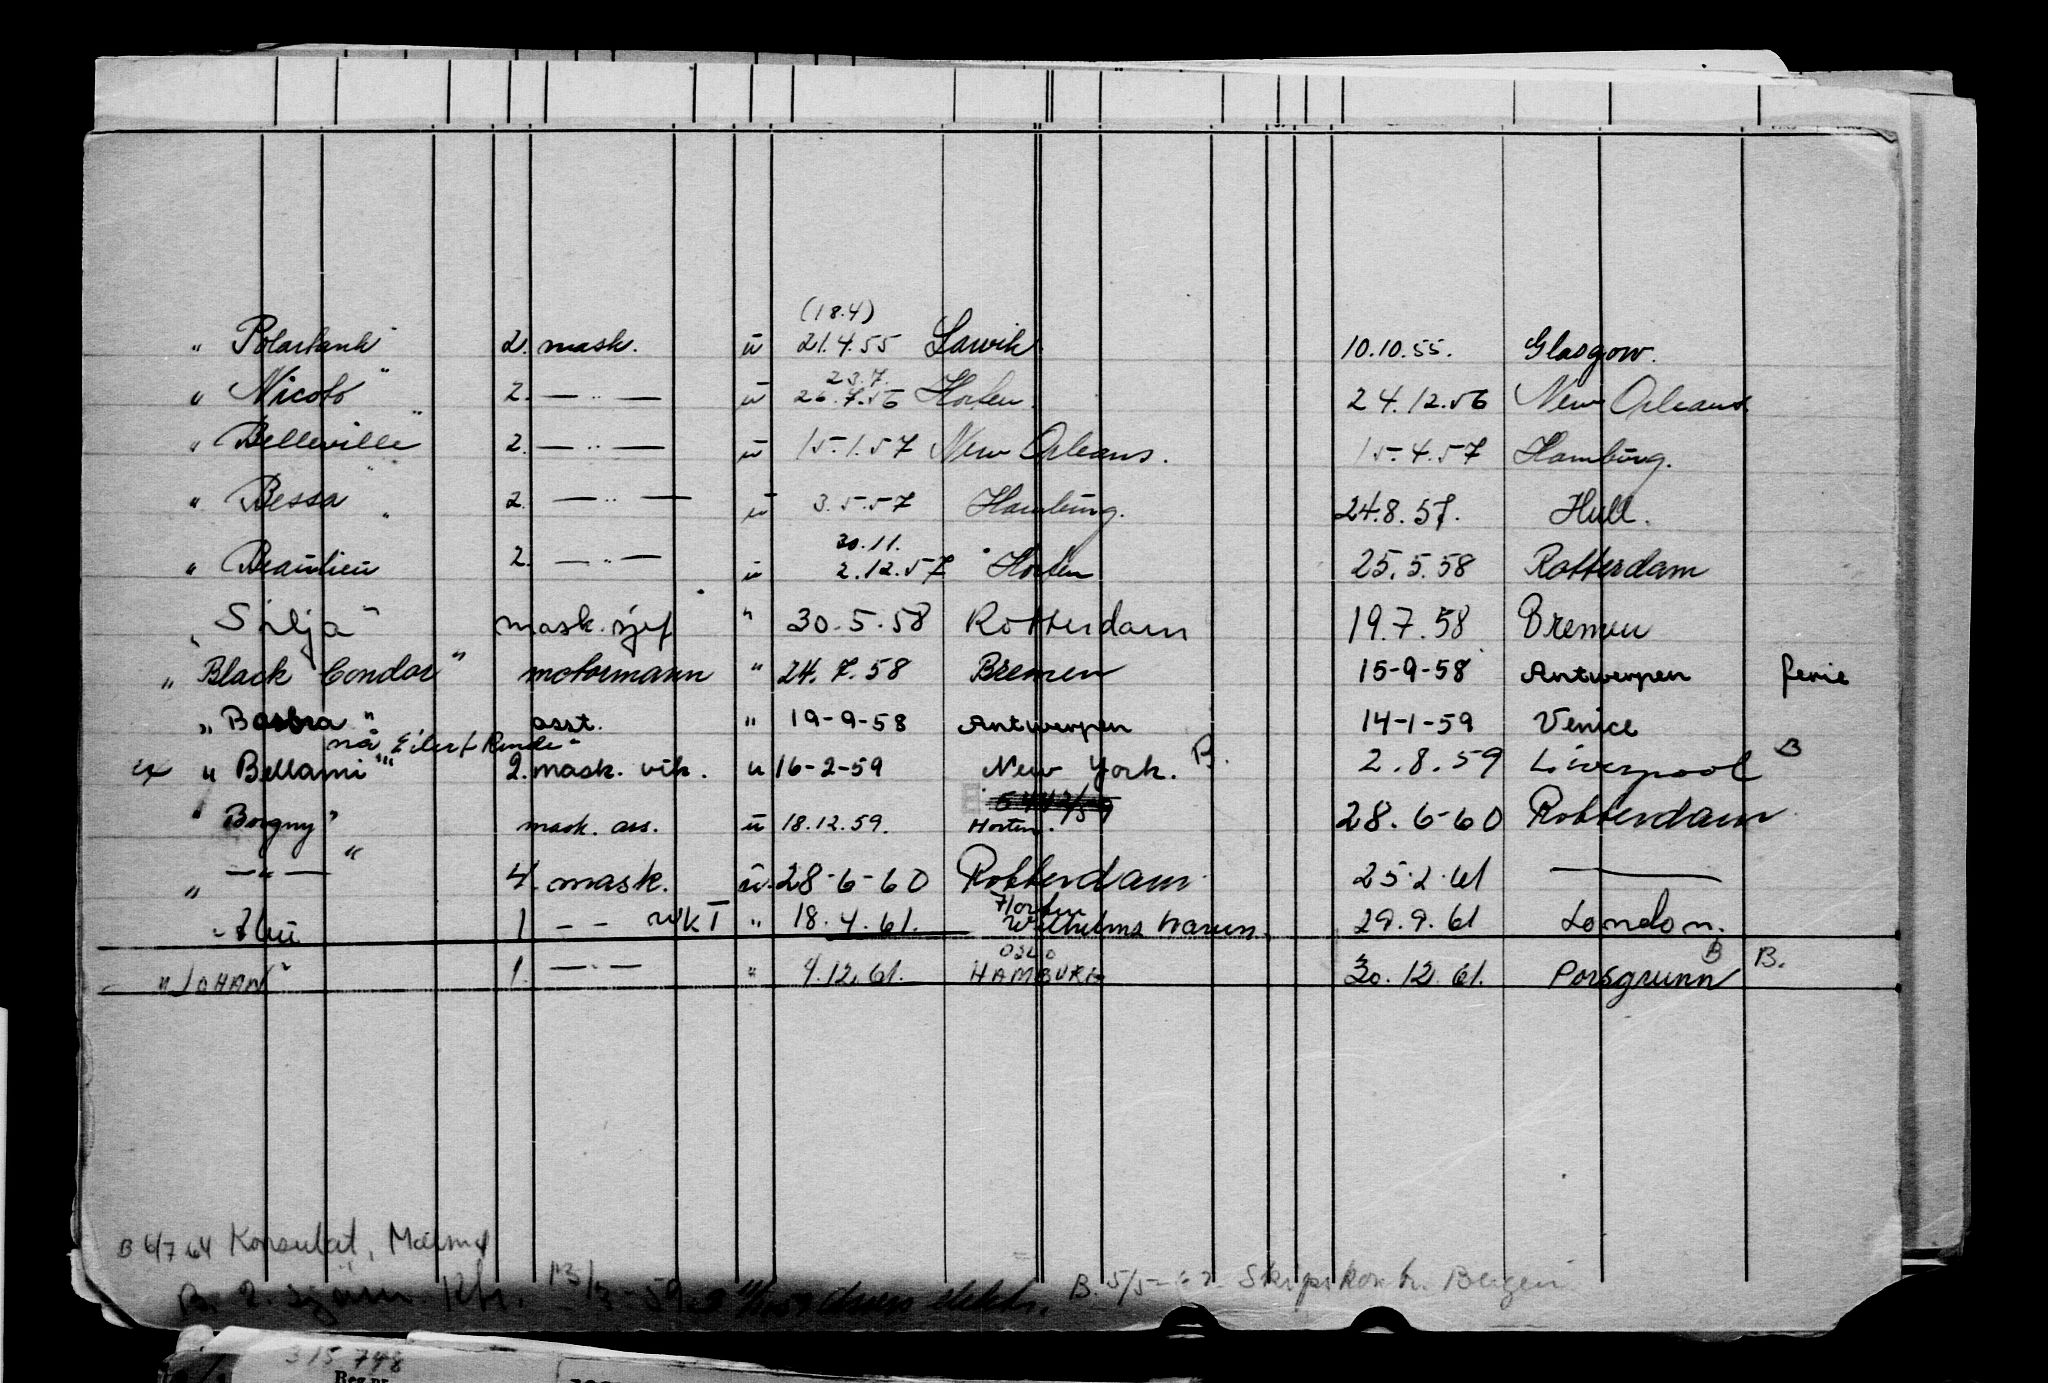 (18.4)
" Polartank" 2. mask. ū 21.4.55 Larvik. 10.10.55. Glasgow.
23.7.
" Nicolb " 2. — " — ū 26.7.56 Horten. 24.12.56 New Orleans.
" Belleville " 2. — " — ū 15.1.57 New Orleans. 15.4.57 Hamburg.
" Bessa " 2. — " — ū 3.5.57 Hamburg. 24.8.57. Hull.
30.11.
" Beaulieu " 2. — " — ū 2.12.57 Horten 25.5.58 Rotterdam
" Silja " mask. sjef " 30.5.58 Rotterdam 19.7.58 Bremen
" Black Condor " motormann " 24.7.58 Bremen 15-9-58 Antwerpen ferie
" Basbra " asst. " 19-9-58 Antwerpen 14-1-59 Venice
nå "Eilert Rinde"
ex " Bellami " 2. mask. vik. u 16-2-59 New York. B. 2.8.59 Liverpool B
" Borgny " mask. ass. ū 18.12.59. Horten. 28.6-60 Rotterdam
" — " — " 4. mask. ū. 28-6-60 Rotterdam 25.2.61 —
Horten
" Alu 1 — — vik I " 18.4.61. Wilhelms haven. 29.9.61 London.
OSLO
" JOHAN " 1. — " — " 4.12.61. HAMBURG 30.12.61. Porsgrunn B B.
B 6/7 64 Konsulat, Malmø
B. 2. sjøm. Ktr. 13/3-59 drevs elektr. B. 5/5-62 Skipskontr. Bergen
315 748
Reg.nr.